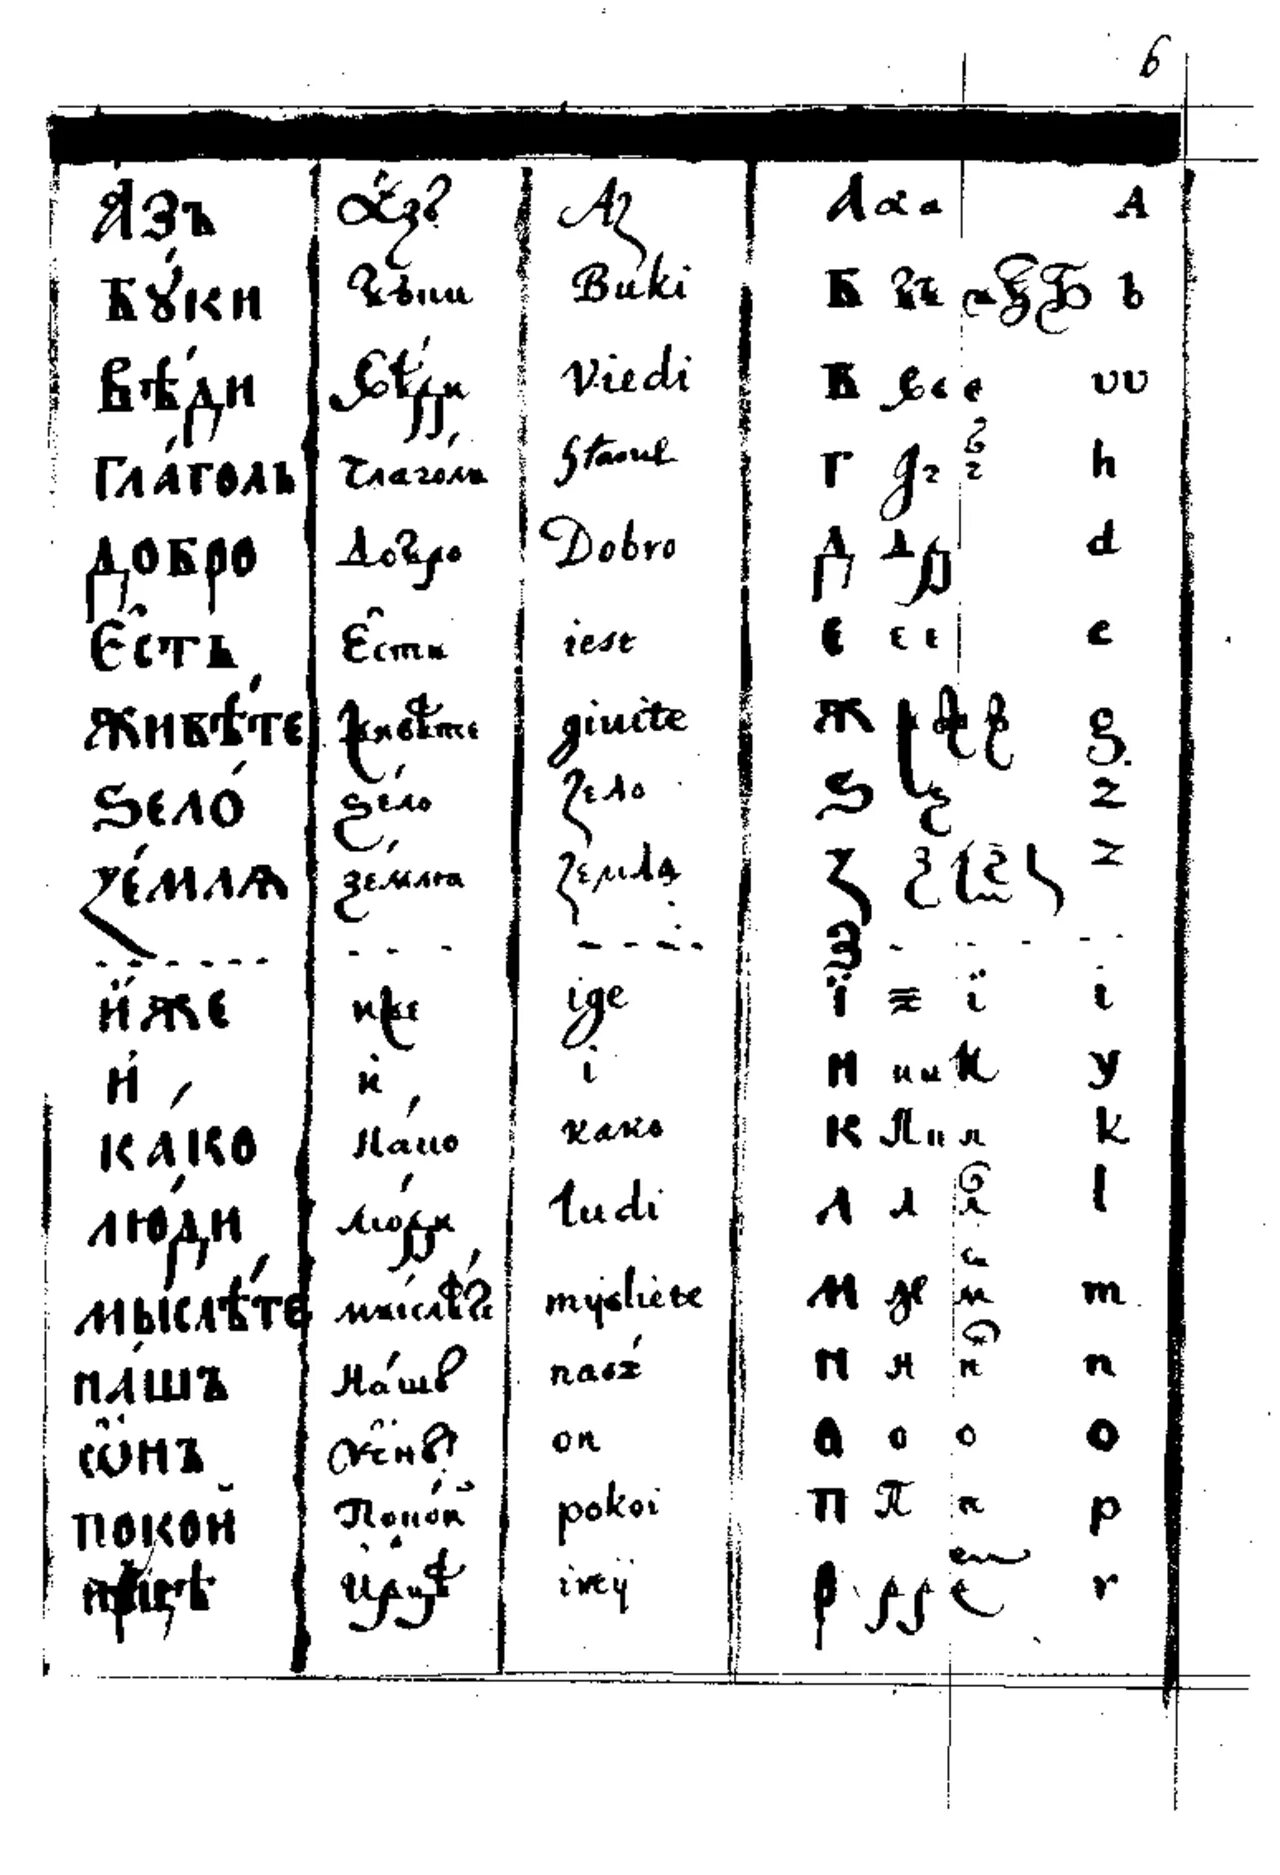 б
А́ЗЪ А҆́зъ Az А а а A
БꙊ́КИ Бꙋки Buki Б б б Б b
ВѢ́ДИ Вѣ́ди Viedi В в в в vv
ГЛАГО́ЛЬ Глаголь Г г г h
ДОБРО Добро Dobro Д д д d
Е҆СТЬ Е҆сть iest Е е е e
ЖИВѢ́ТЕ живѣте giuite Ж ж ж ж g
ЅЕЛО́ ѕѣло зело Ѕ ѕ z
ЗЕМЛѦ́ земля З з з z
И҆́ЖЕ иже ige Ї ї i
И҆ и i И и и и y
КА́КО Како како К к к к k
ЛЮ́ДИ Люди ludi Л л л l
МЫСЛѢ́ТЕ мыслѣте mysliete М м м m
НА́ШЪ На́шъ nasz Н н н n
Ѻ҆НЪ Ѻ҆нъ on О о о o
ПОКОЙ Покой pokoi П п п p
Рцѣ Р р р r